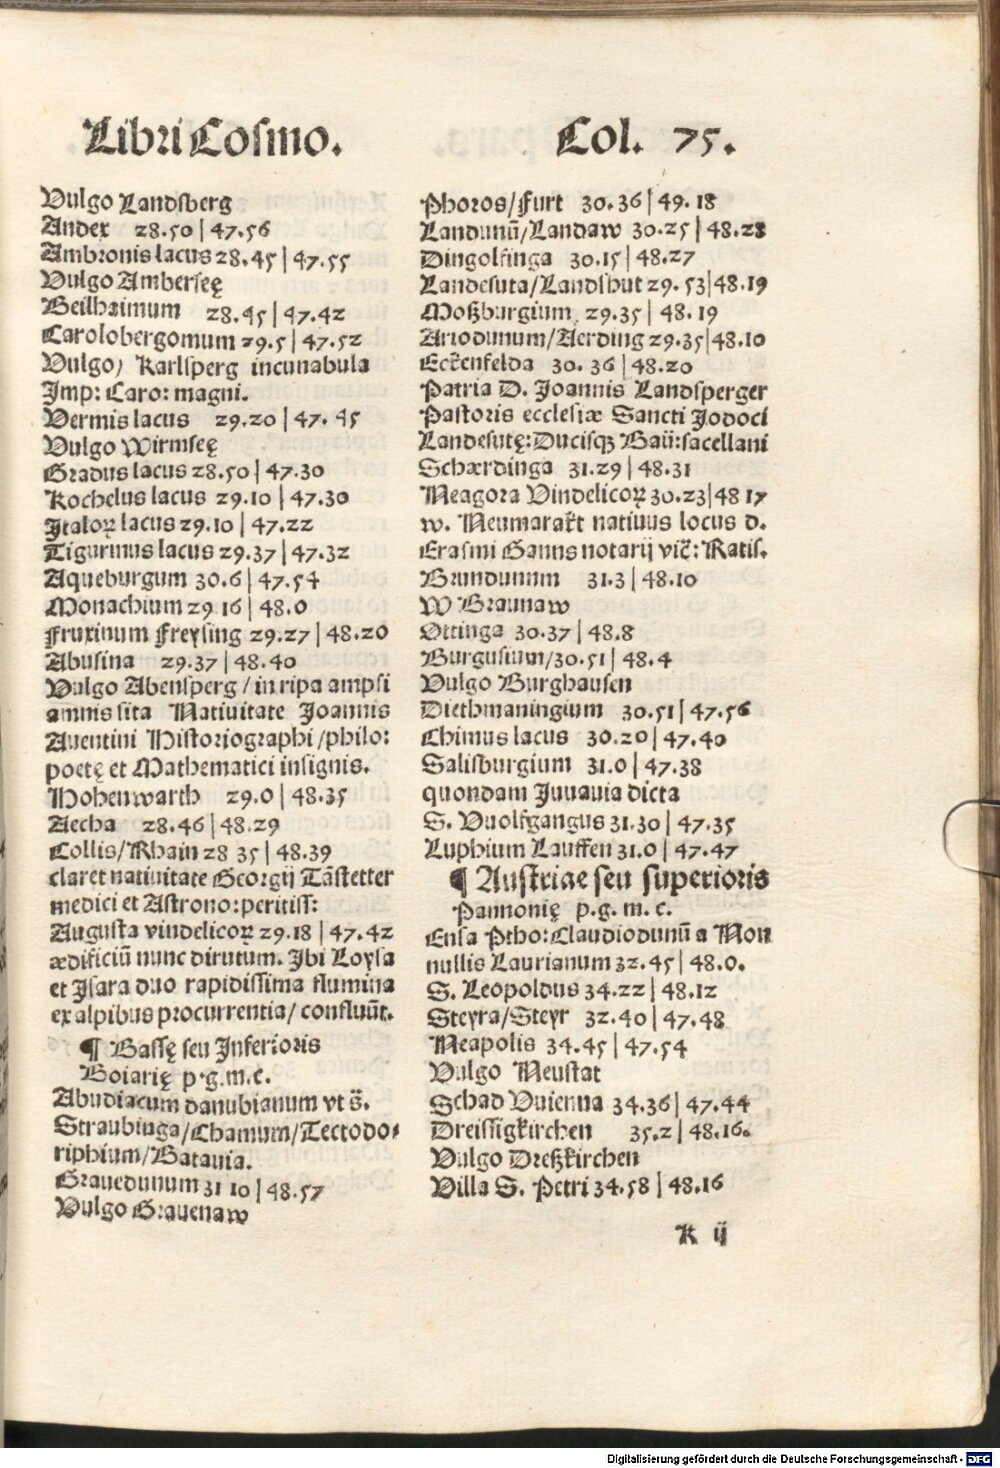 Libri Cosmo. Col. 75.
Vulgo Landsberg
Andex 28.50 | 47.56
Ambronis lacus 28.45 | 47.55
Vulgo Amberseę
Beilhaimum 28.45 | 47.42
Carolobergomum 29.5 | 47.52
Vulgo/ Karlsperg incunabula
Imp: Caro: magni.
Vermis lacus 29.20 | 47.45
Vulgo Wirmseę
Gradus lacus 28.50 | 47.30
Kochelus lacus 29.10 | 47.30
Italoꝝ lacus 29.10 | 47.22
Tigurinus lacus 29.37 | 47.32
Aqueburgum 30.6 | 47.54
Monachium 29 16 | 48.0
Fruxinum Freysing 29.27 | 48.20
Abusina 29.37 | 48.40
Vulgo Abensperg / in ripa ampsi
amnis sita Natiuitate Joannis
Auentini Historiographi /philo:
poetę et Mathematici insignis.
Hohenwarth 29.0 | 48.35
Aecha 28.46 | 48.29
Collis/Rhain 28 35 | 48.39
claret natiuitate Georgij Tāstetter
medici et Astrono:peritiss:
Augusta vindelicoꝝ 29.18 | 47.42
ædificiū nunc dirutum. Ibi Loysa
et Isara duo rapidissima flumina
ex alpibus procurrentia/ confluūt.
¶ Bassę seu Inferioris
Boiarię p.g.m.c.
Abudiacum danubianum vt s̄.
Straubinga/Chamum/Tectodo-
riphium/Batauia.
Grauedunum 31 10 | 48.57
Vulgo Grauenaw
Phoros/Furt 30.36 | 49.18
Landunū/Landaw 30.25 | 48.28
Dingolfinga 30.15 | 48.27
Landesuta/Landshut 29.53|48.19
Moßburgium 29.35 | 48.19
Ariodunum/Aerding 29.35|48.10
Eckenfelda 30.36 | 48.20
Patria D. Joannis Landsperger
Pastoris ecclesiæ Sancti Jodoci
Landesutę:Ducisqꝫ Baū:sacellani
Schærdinga 31.29 | 48.31
Neagora Vindelicoꝝ 30.23|48 17
w. Neumarakt natiuus locus d.
Erasmi Ganns notarij vic̄: Ratis.
Brundunum 31.3 | 48.10
W Braunaw
Ottinga 30.37 | 48.8
Burgusium/30.51 | 48.4
Vulgo Burghausen
Diethmaningium 30.51 | 47.56
Chimus lacus 30.20 | 47.40
Salisburgium 31.0 | 47.38
quondam Juuauia dicta
S. Vuolfgangus 31.30 | 47.35
Luphium Lauffen 31.0 | 47.47
¶ Austriae seu superioris
Pannonię p.g.m.c.
Ensa Ptho:Claudiodunū a Non
nullis Laurianum 32.45 | 48.0.
S. Leopoldus 34.22 | 48.12
Steyra/Steyr 32.40 | 47.48
Neapolis 34.45 | 47.54
Vulgo Neustat
Schad Vuienna 34.36 | 47.44
Dreissigkirchen 35.2 | 48.16.
Vulgo Dreßkirchen
Villa S. Petri 34.58 | 48.16
K ij
Digitalisierung gefördert durch die Deutsche Forschungsgemeinschaft - DFG